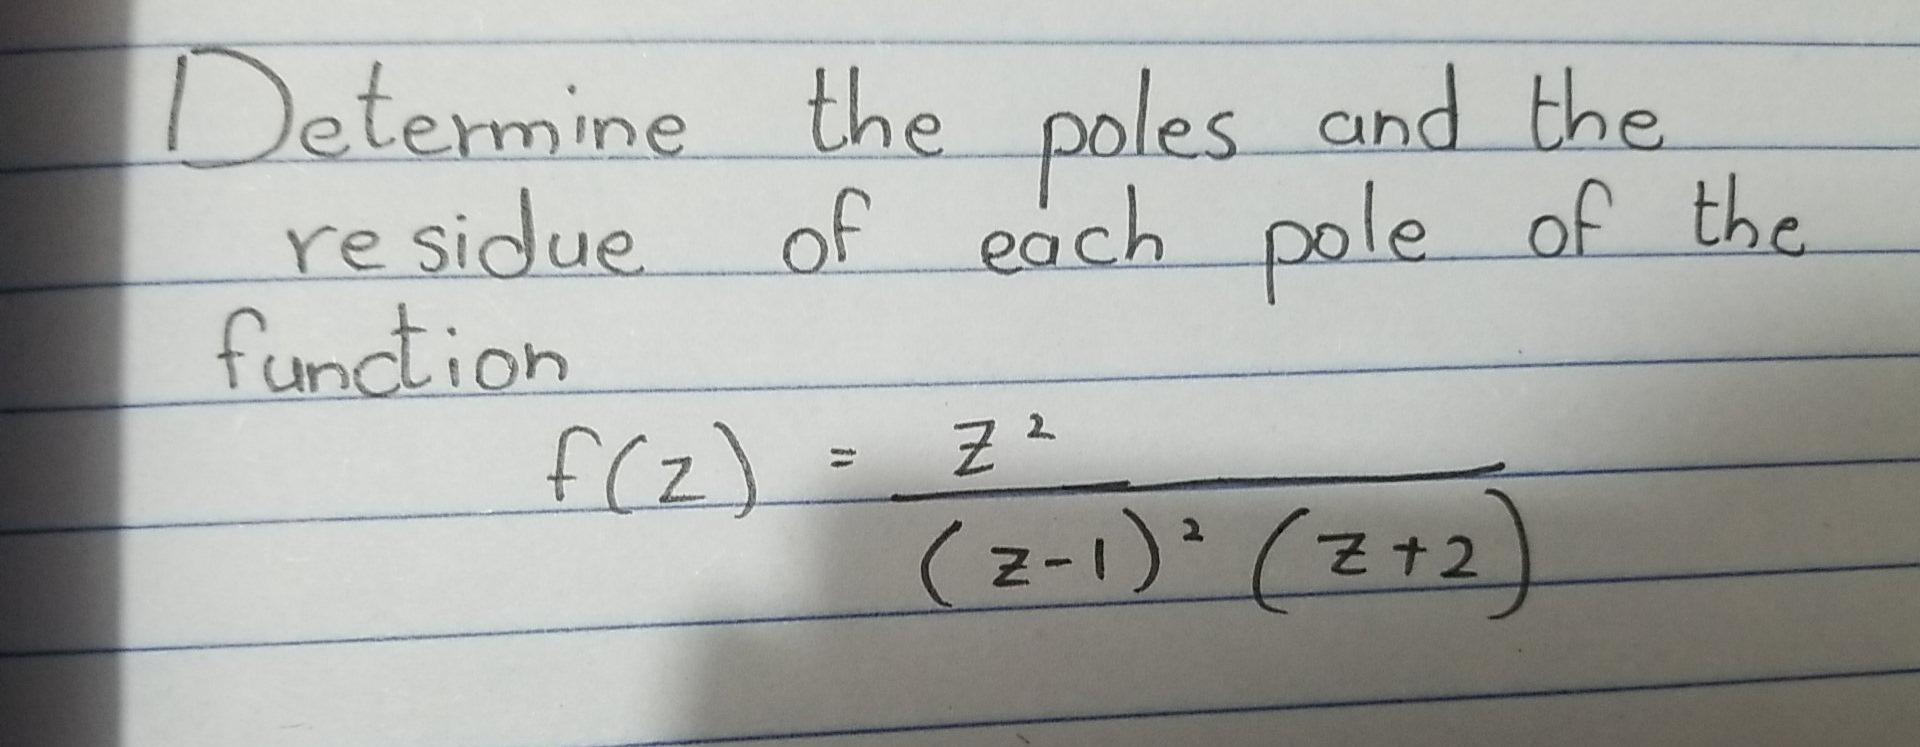 Determine the poles and the
residue of each pole of the
function
f(z) = z²
(z-1)² (z+2)